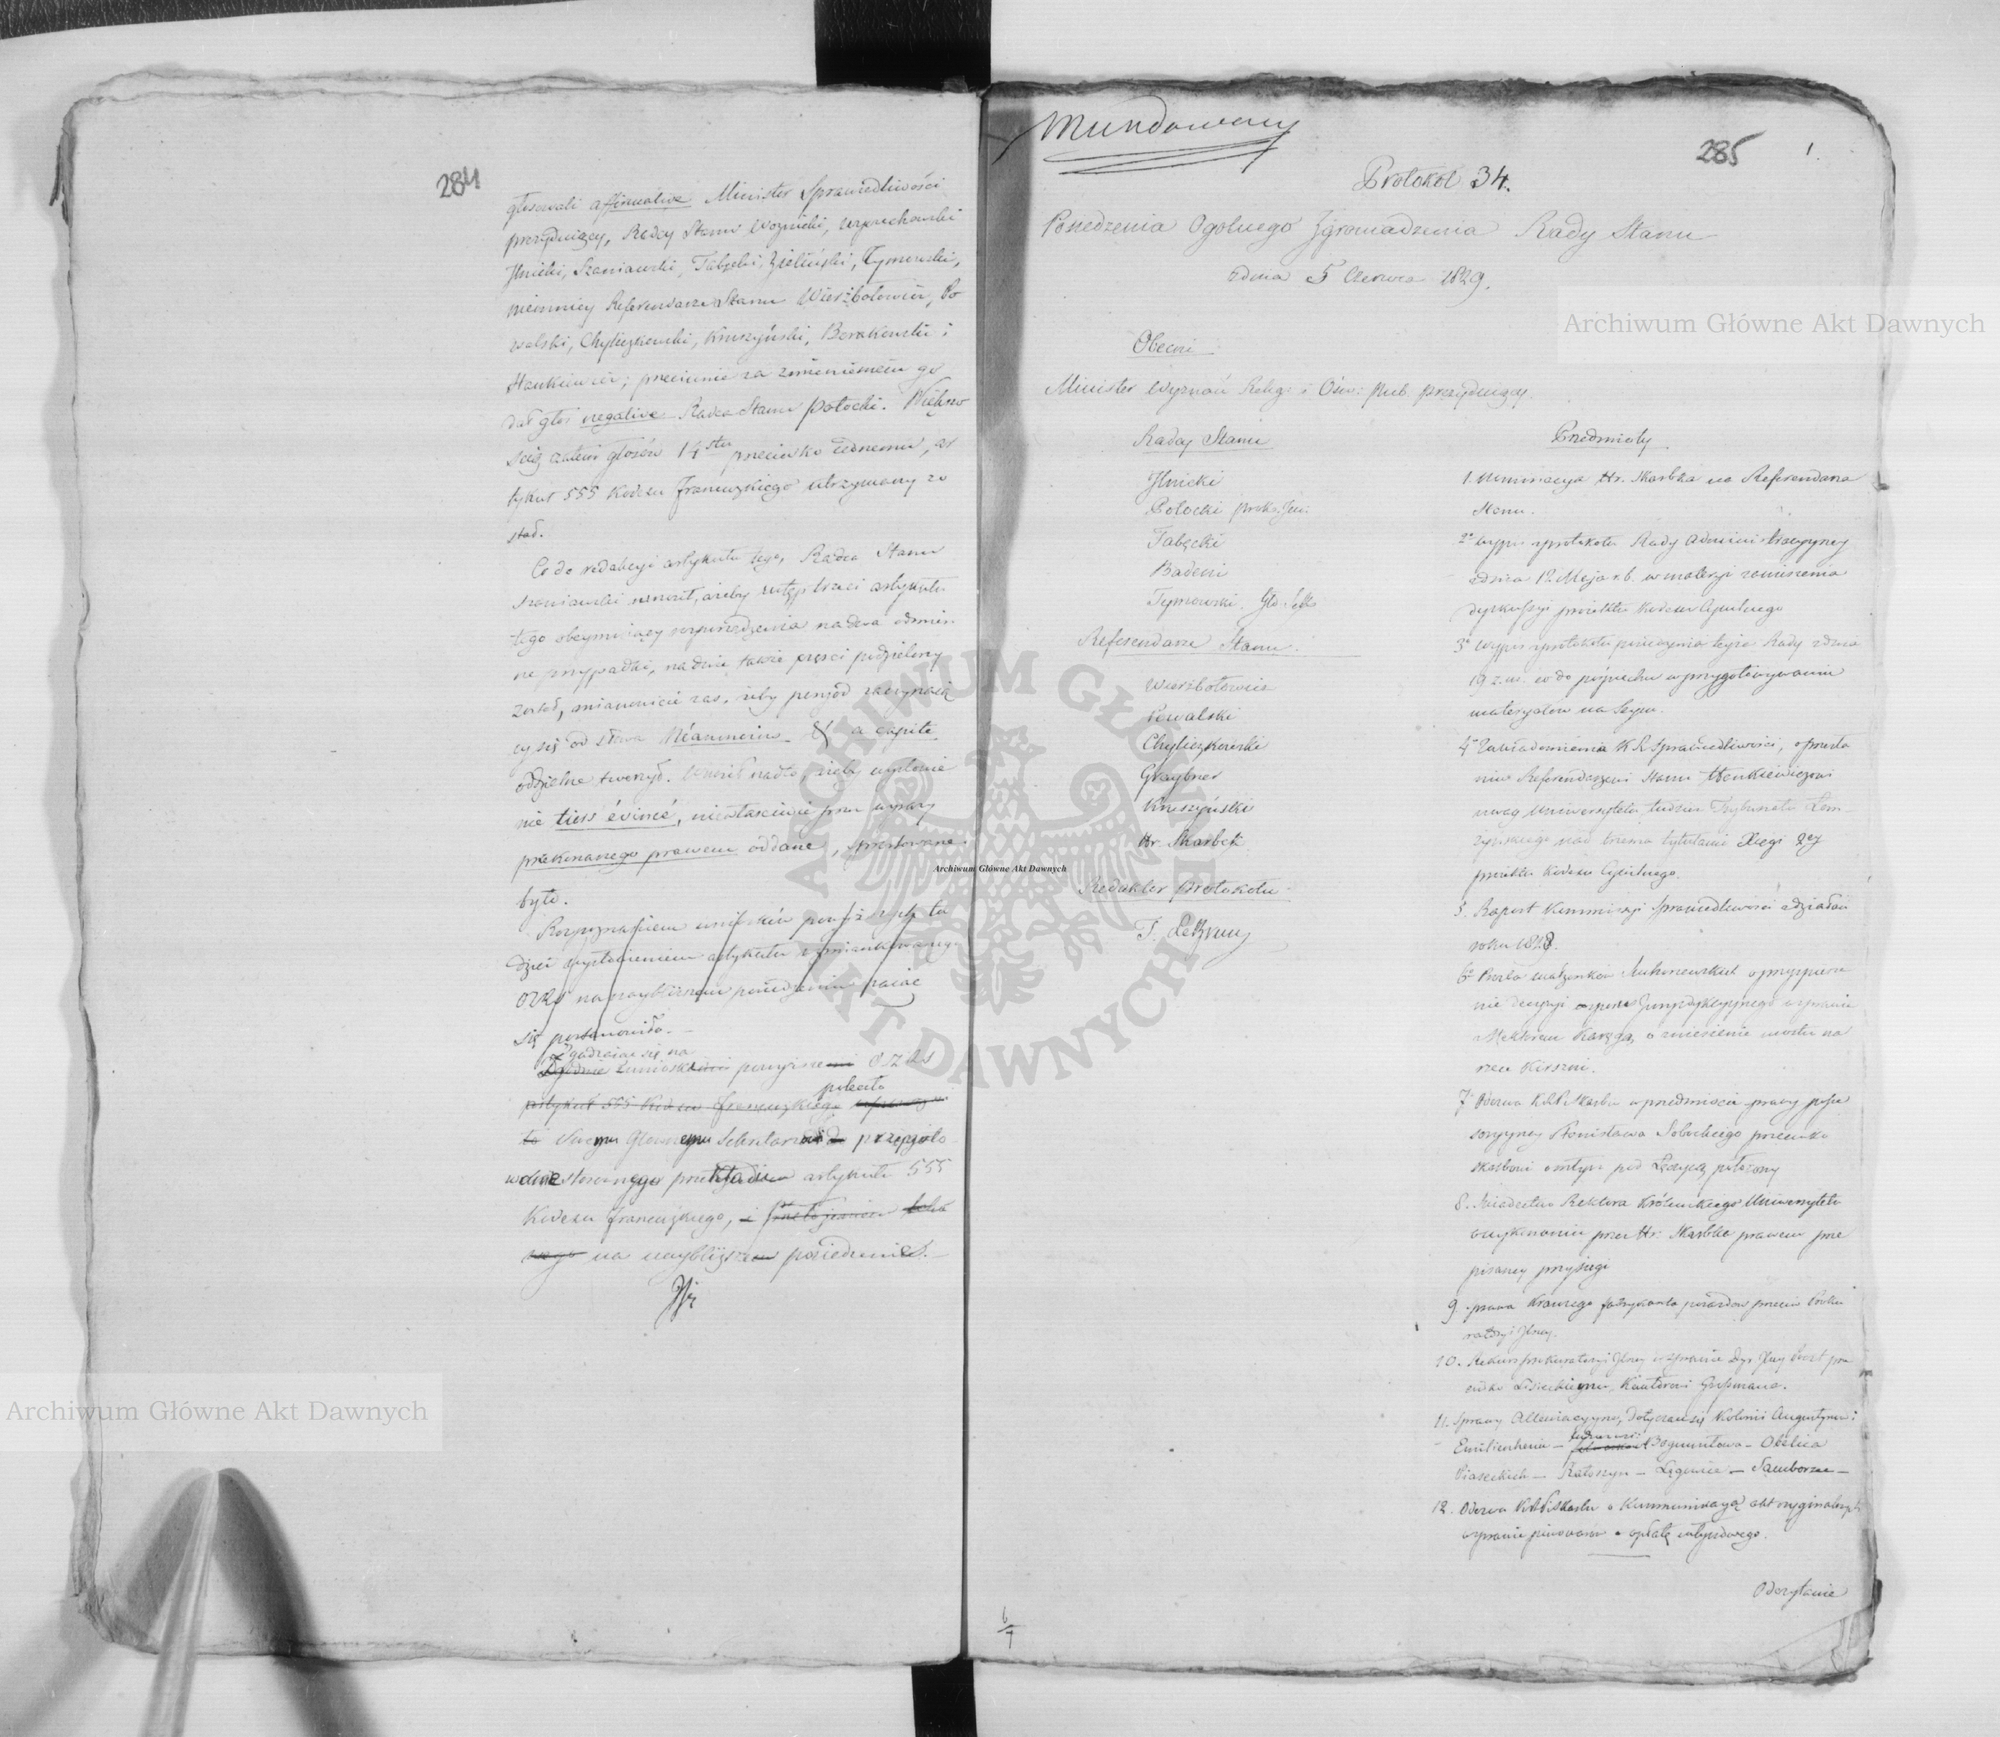 284
głosowali affirmative Minister Sprawiedliwości
prezydujący, Radcy Stanu Woźnicki, Wyczechowski
Hnicki, Szaniawski, Tabęcki, Zieliński, Tymowski,
niemniey Referendarze Stanu Wierzbołowicz, Ko
walski, Chyliczkowski, Kruszyński, Borakowski i
Hankiewicz; przeciwnie za zmienieniem go
dał głos negative Radca Stanu Potocki. Większo
ścią zatem głosów 14stu przeciwko jednemu, ar
tykuł 555 Kodexu Francuzkiego utrzymany zo
stał.
Co do redakcyi artykułu tego, Radca Stanu
Szaniawski wnosił, ażeby ustęp trzeci artykułu
tego obeymujący rozporządzenia na dwa odmien
ne przypadki, na dwie takie części podzielony
został, mianowicie zaś, żeby peryod zaczynaią
cy się od słowa Néanmoins & a capite
oddzielnie tworzył. Wnosił nadto, żeby wysłowie
nie tiers évincé, niewłaściwie przez wyrazy
przekonanego prawem oddane, sprostowane
było.
Rozpoznaniem wniosków powyższych tu
dzież wysłowieniem artykułu wzmiankowanego
OZRS na naybliższem posiedzeniu zaiąć
się postanowiło.
Zgadzaiąc się na
wnioski powyższe OZRS
poleciło
artykuł 555 Kodexu Francuzkiego
to Swemu Głównemu Sekretarzowi przygoto
wanie stosownego przekładu artykułu 555
Kodexu Francuzkiego,
na naybliższe posiedzenie.
Mundowany
285
1.
Protokół 34.
Posiedzenia Ogólnego Zgromadzenia Rady Stanu
z dnia 5 Czerwca 1829.
Obecni
Minister Wyznań Relig: i Ośw: Pub. prezydujący
Radcy Stanu
Hnicki
Potocki prok. Jen:
Tabęcki
Badeni
Tymowski. Gło: Sekr
Referendarze Stanu.
Wierzbołowicz
Kowalski
Chyliczkowski
Graybner
Kruszyński
Hr. Skarbek
Redaktor Protokołu
T. LeBrun
Przedmioty
1. Nominacya Hr. Skarbka na Referendarza
Stanu.
2. Wypis z protokołu Rady Administracyyney
z dnia 12. Maja r. b. w materyi zawieszenia
dyskussyi projektu Kodexu Cywilnego
3. Wypis z protokołu posiedzenia teyże Rady z dnia
19 z. m. co do pośpiechu w przygotowywaniu
materyałów na Seym.
4. Zawiadomienia K.R. Sprawiedliwości, o przesła
niu Referendarzowi Stanu Hankiewiczowi
uwag Uniwersytetu tudzież Trybunału Łom
żyńskiego nad trzema tytułami Xięgi 2ey
projektu Kodexu Cywilnego.
5. Raport Kommissyi Sprawiedliwości z działań
roku 1828.
6. Prośba małżonków o przyspiesze
nie decyzyi sporu Juryzdykcyynego w sprawie
z Hektorem Karęgą, o zniesienie mostu na
rzece Kirszni.
7. Odezwa K.R.P. i Skarbu w przedmiocie sprawy posse
soryyney Stanisława Sobockiego przeciwko
skarbowi o młyn pod Łęczycą położony
8. Świadectwo Rektora Królewskiego Uniwersytetu
o wykonaniu przez Hr. Skarbka prawem prze
pisaney przysięgi
9. Sprawa Krauzego fabrykanta pojazdów przeciw Proku
ratoryi Jlney.
10. Rekurs prokuratoryi Jlney w sprawie Dyr. Jlney Poczt prze
ciwko Lisieckiemu, Kantorowi Gussmana.
11. Sprawy Alleniacyyne, dotyczące się Kolonii Augustynowi
Emilienheim — Bogumiłowa — Oblica
Piaseckich — Ratoszyn — Łęgowice — Samborze —
12. Odezwa K.R.P. i Skarbu o kommunikacyą akt oryginalnych
w sprawie piwowarów o opłatę
Odczytanie
6/7
Archiwum Główne Akt Dawnych
Archiwum Główne Akt Dawnych
Archiwum Główne Akt Dawnych
ARCHIWUM GŁÓWNE AKT DAWNYCH